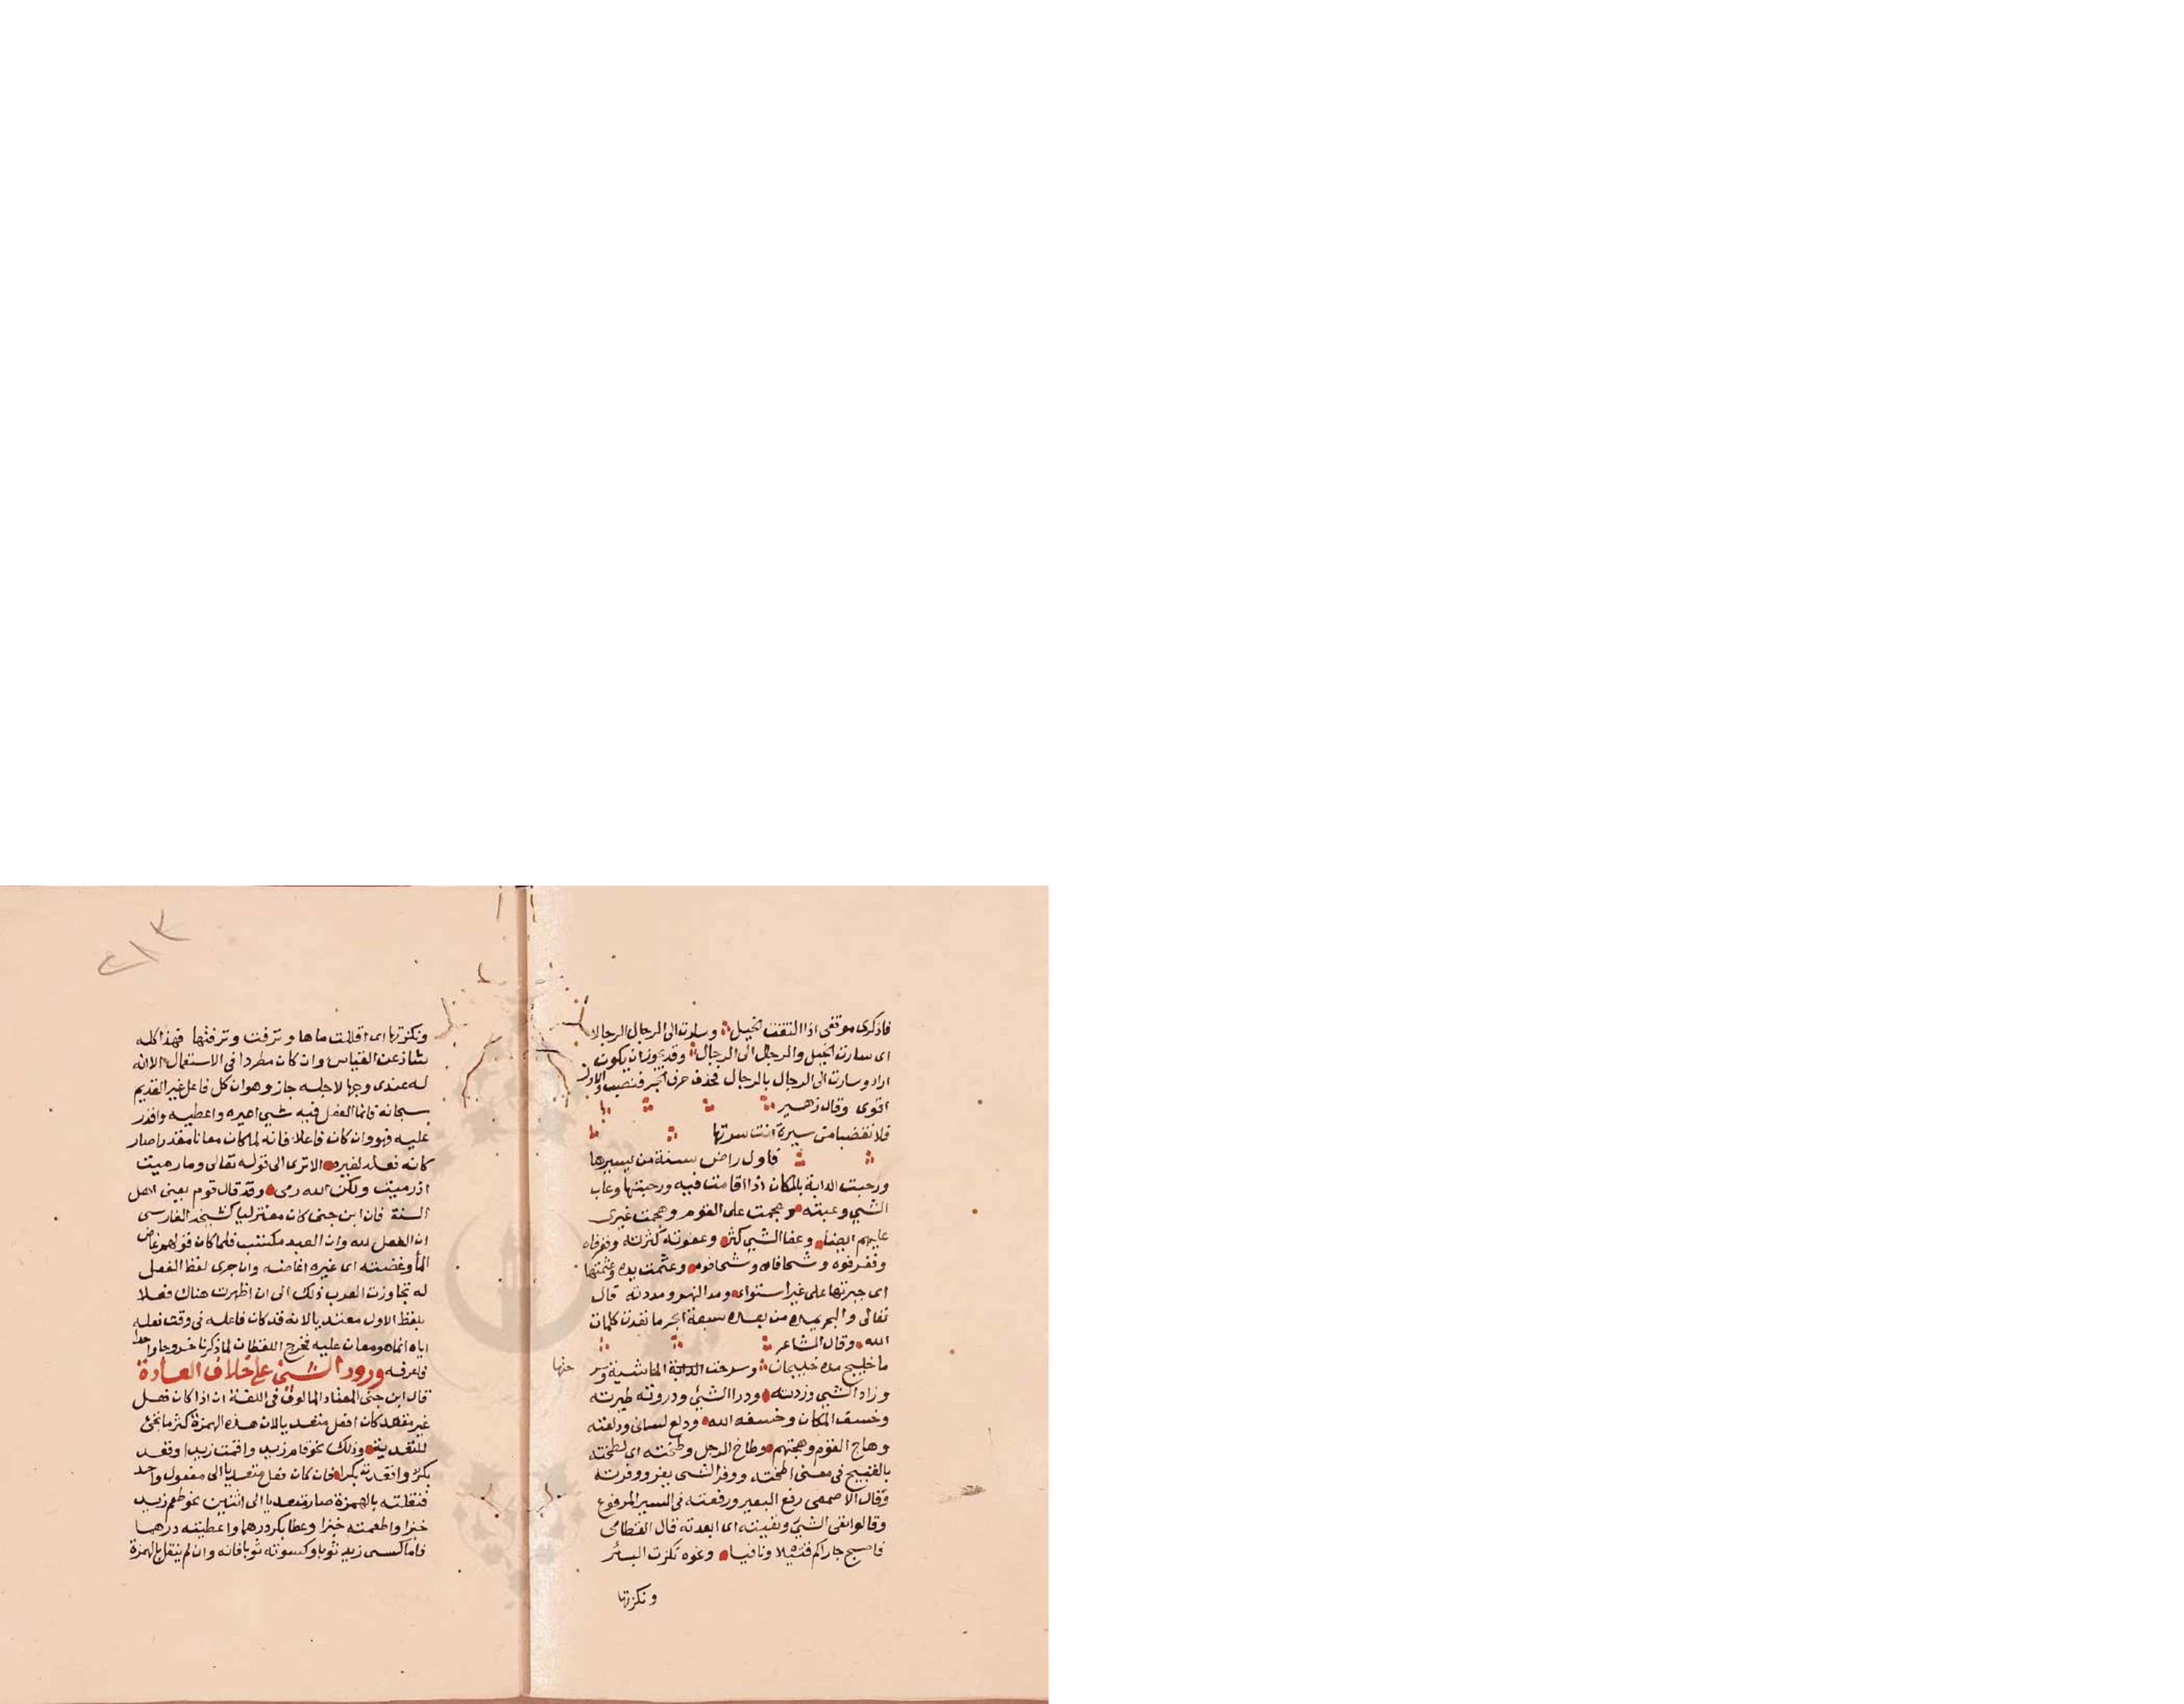 فاذكرى موقفى اذا التقت الخيل وسارت الى الرجال الرجالا
اى سارت الخيل والرجال الى الرجال وقد يجوز ان يكون
اراد وسارت الى الرجال بالرجال فحذف حرف الجر فنصب والاول
اقوى وقال زهير
فلا تغضبا من سيرة انت سرتها
فاول راض سنة من يسيرها
ورجنت الدابة بالمكان اذا اقامت فيه ورجنتها وعاب
الشى وعبته وهجمت على القوم وهجمت غيرى
عليهم ايضا وعفا الشى كثر وعفوته كثرته وفغرفاه
وفغر فوه وشحافاه وشحافوه وعثمت يده وعثمتها
اى جبرتها على غير استواء ومد النهر ومددته قال
تعالى والبحر يمده من بعده سبعة ابحر ما نفدت كلمات
الله وقال الشاعر
ما خليج مده خليجان وسرحت الدابة الماشية وسر حتها
وزاد الشى وزدته وذرا الشئ وذروته طيرته
وخسف المكان وخسفه الله ودلع لسانى ودلعته
وهاج القوم وهجتهم وطاخ الرجل وطخته اى لطخته
بالقبيح فى معنى اطخته ووفر الشى يفر ووفرته
وقال الاصمعى رفع البعير ورفعته فى السير المرفوع
وقالوا نفى الشئ ونفيته اى ابعدته قال القطامى
فاصبح جاراكم قتيلا ونافيا ونحوه نكزت البئر
ونكزتها
٢١٣
ونكزتها اى اقللت ماها ونزفت ونزفتها فهذا كله
شاذ عن القياس وان كان مطردا فى الاستعمال الا انه
له عندى وجها لاجله جاز وهو ان كل فاعل غير القديم
سبحانه فانما الفعل فيه شى اعيره واعطيه واقدر
عليه فهو وان كان فاعلا فانه لما كان معانا مقدرا صار
كانه فعله لغيره الا ترى الى قوله تعالى وما رميت
اذ رميت ولكن الله رمى وقد قال قوم يعنى اهل
السنة فان ابن جنى كان معتزليا كشيخه الفارسى
ان الفعل لله وان العبد مكتسب فلما كان قولهم غاض
الماْ وغضته اى غيره اغاضه وان جرى لفظ الفعل
له تجاوزت العرب ذلك الى ان اظهرت هناك فعلا
بلفظ الاول معتديا لانه قد كان فاعله فى وقت فعله
اياه انما هو معان عليه فخرج اللفظان لما ذكرنا خروجا واحدا
فاعرفه ورود الشئ على خلاف العادة
قال ابن جنى المعتاد المالوف فى اللغة ان اذا كان فعل
غير متعد كان افعل متعديا لان هذه الهمزة كثر ما تجئ
للتعدية وذلك نحو قام زيد واقمت زيدا وقعد
بكر واقعدته بكرا فان كان فعل متعديا الى مفعول واحد
فنقلته بالهمزة صار متعديا الى اثنين نحو طعم زيد
خبزا واطعمته خبزا وعطا بكر درهما واعطيته درهما
فاما كسى زيد ثوبا وكسوته ثوبا فانه وان لم ينقل بالهمزة